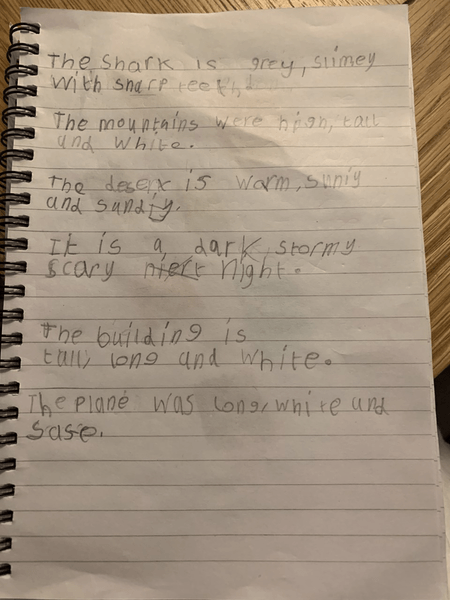 The Shark is grey, slimey
With sharp teeth
The mountains were high, tall
and white.
The desert is warm, suniy
and sundiy.
It is a dark, stormy
scary night.
The building is
tall, long and white.
The plane was long, white and
sase.